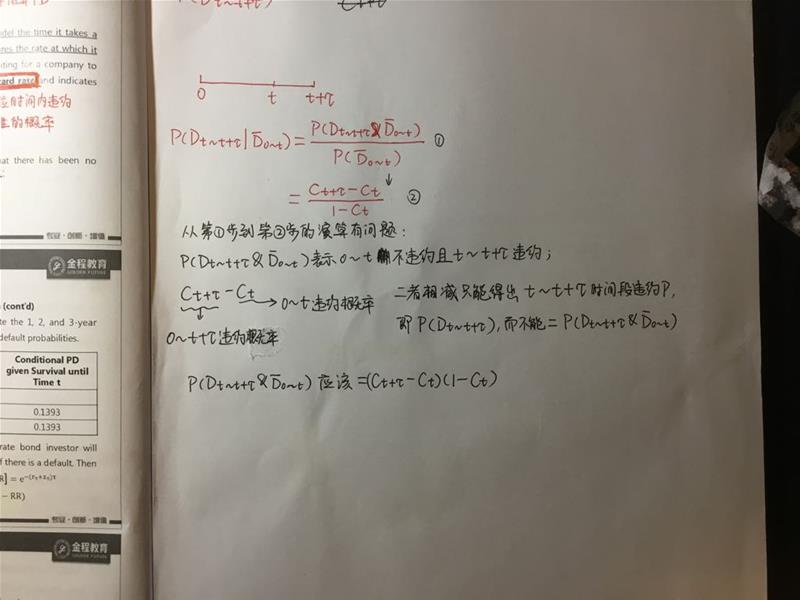 del the time it takes a
res the rate at which it
iting for a company to
zard rate and indicates
应时间内违约
生的概率
hat there has been no
专业·创新·增值
金程教育
GOLDEN FUTURE
(cont'd)
te the 1, 2, and 3-year
default probabilities.
Conditional PD
given Survival until
Time t
0.1393
0.1393
rate bond investor will
f there is a default. Then
R] = e^{-(r_τ+z_τ)τ}
– RR)
专业·创新·增值
金程教育
GOLDEN FUTURE
0 t t+τ
P(D_{t~t+τ}|D̄_{0~t}) = P(D_{t~t+τ}&D̄_{0~t}) / P(D̄_{0~t}) ①
↓
= (C_{t+τ}-C_t) / (1-C_t) ②
从第①步到第②步的演算有问题:
P(D_{t~t+τ}&D̄_{0~t})表示0~t不违约且t~t+τ违约;
C_{t+τ}-C_t → 0~t违约概率 二者相减只能得出t~t+τ时间段违约P,
0~t+τ违约概率 即P(D_{t~t+τ}),而不能=P(D_{t~t+τ}&D̄_{0~t})
P(D_{t~t+τ}&D̄_{0~t})应该=(C_{t+τ}-C_t)(1-C_t)